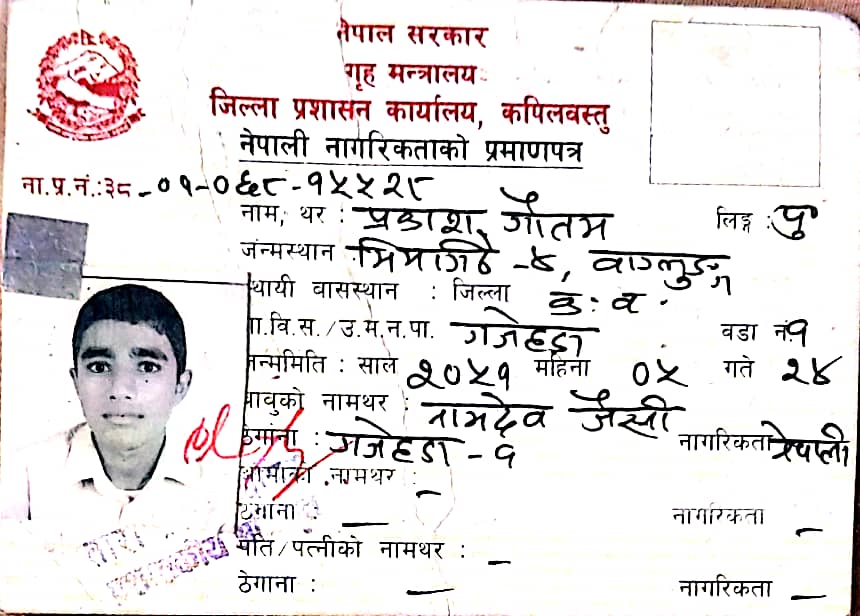 नेपाल सरकार
गृह मन्त्रालय
जिल्ला प्रशासन कार्यालय, कपिलवस्तु
नेपाली नागरिकताको प्रमाणपत्र
ना.प्र.नं.:३८-०१-०६८-१५५२८
नाम, थर : प्रकाश गौतम लिङ्ग : पु
जन्मस्थान भिमगिठे -४, वाग्लुङ्ग
स्थायी वासस्थान : जिल्ला क: व.
गा.वि.स./उ.म.न.पा. गजेहडा वडा नं. १
जन्ममिति : साल २०५१ महिना ०५ गते २४
बाबुको नामथर : रामदेव जैसी
ठेगाना : गजेहडा - १ नागरिकता नेपाली
आमाको नामथर : -
ठेगाना : - नागरिकता -
पति/पत्नीको नामथर : -
ठेगाना : - नागरिकता -